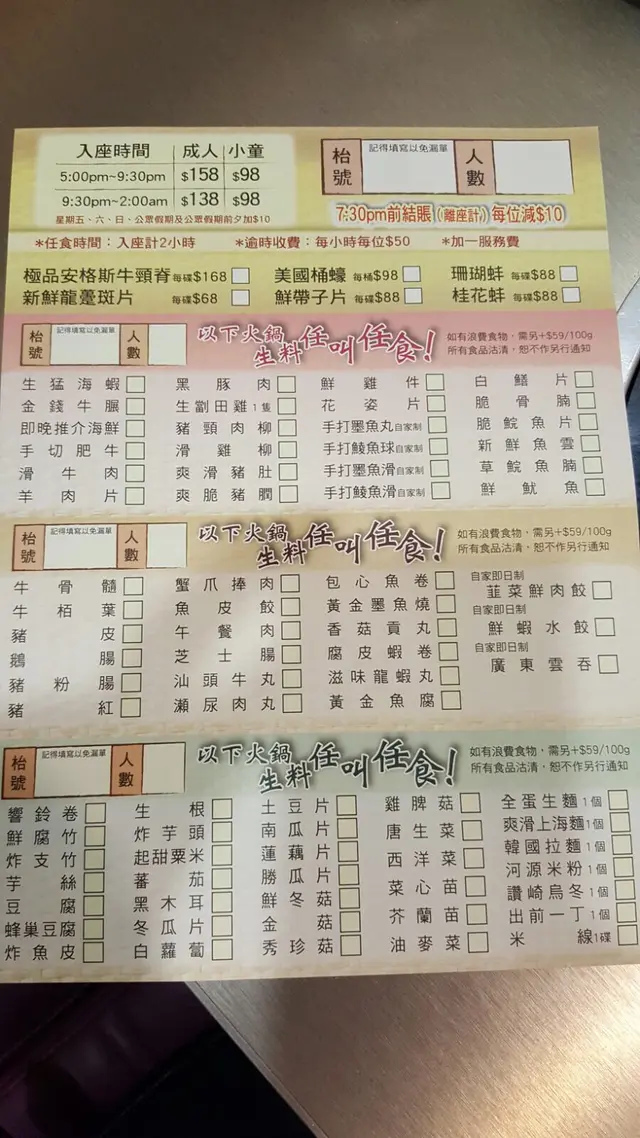 入座時間 成人 小童
5:00pm~9:30pm $158 $98
9:30pm~2:00am $138 $98
星期五、六、日、公眾假期及公眾假期前夕加$10
枱號 記得填寫以免漏單 人數
7:30pm前結賬(離座計)每位減$10
*任食時間：入座計2小時 *逾時收費：每小時每位$50 *加一服務費
極品安格斯牛頸脊 每碟$168 美國桶蠔 每桶$98 珊瑚蚌 每碟$88
新鮮龍躉斑片 每碟$68 鮮帶子片 每碟$88 桂花蚌 每碟$88
枱號 記得填寫以免漏單 人數 以下火鍋生料任叫任食！
如有浪費食物，需另+$59/100g
所有食品沽清，恕不作另行通知
生猛海蝦 黑豚肉 鮮雞件 白鱔片
金錢牛𦟌 生劏田雞1隻 花姿片 脆骨腩
即晚推介海鮮 豬頸肉柳 手打墨魚丸自家制 脆鯇魚片
手切肥牛 滑雞柳 手打鯪魚球自家制 新鮮魚雲
滑牛肉 爽滑豬肚 手打墨魚滑自家制 草鯇魚腩
羊肉片 爽脆豬膶 手打鯪魚滑自家制 鮮魷魚
枱號 記得填寫以免漏單 人數 以下火鍋生料任叫任食！
如有浪費食物，需另+$59/100g
所有食品沽清，恕不作另行通知
牛骨髓 蟹爪捧肉 包心魚卷 自家即日制 韮菜鮮肉餃
牛栢葉 魚皮餃 黃金墨魚燒 自家即日制 鮮蝦水餃
豬皮 午餐肉 香菇貢丸 自家即日制 廣東雲吞
鵝腸 芝士腸 腐皮蝦卷
豬粉腸 汕頭牛丸 滋味龍蝦丸
豬紅 瀨尿肉丸 黃金魚腐
枱號 記得填寫以免漏單 人數 以下火鍋生料任叫任食！
如有浪費食物，需另+$59/100g
所有食品沽清，恕不作另行通知
響鈴卷 生根 土豆片 雞脾菇 全蛋生麵1個
鮮腐竹 炸芋頭 南瓜片 唐生菜 爽滑上海麵1個
炸支竹 起甜粟米 蓮藕片 西洋菜 韓國拉麵1個
芋絲 蕃茄 勝瓜片 菜心苗 河源米粉1個
豆腐 黑木耳 鮮冬菇 芥蘭苗 讚崎烏冬1個
蜂巢豆腐 冬瓜片 金菇 油麥菜 出前一丁1個
炸魚皮 白蘿蔔 秀珍菇 米線1碟